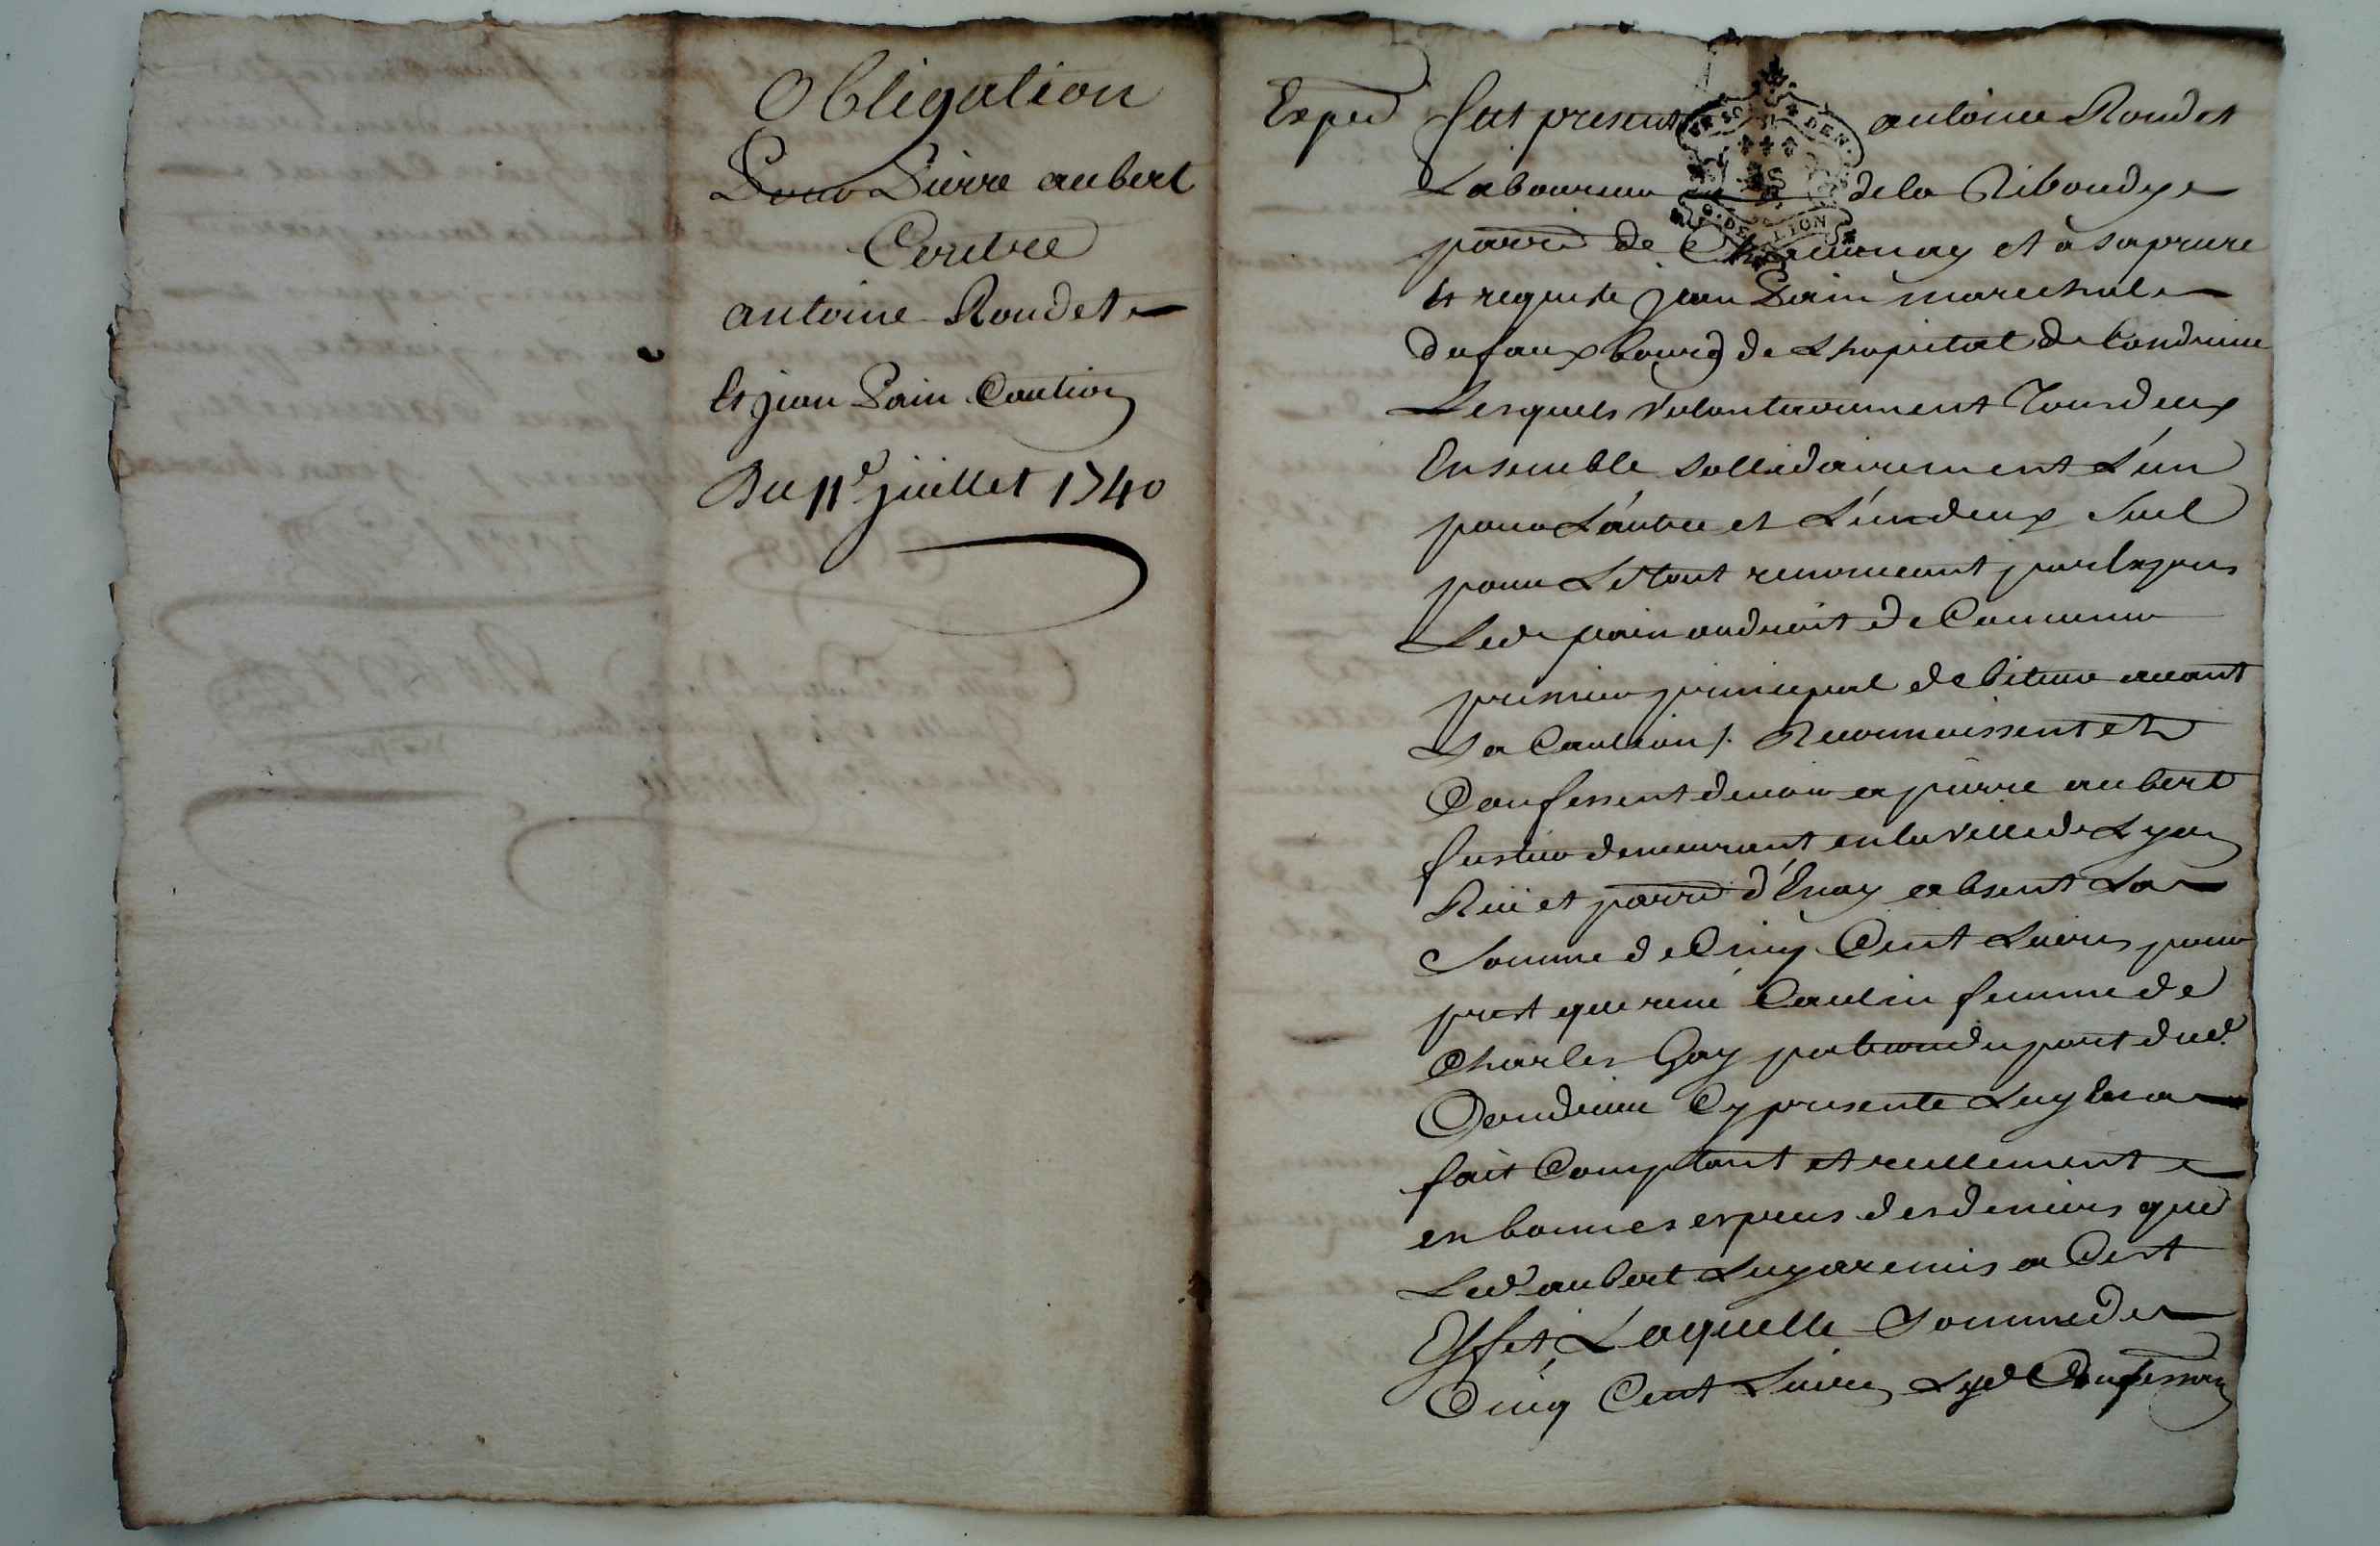 Obligation
Pour Pierre aubert
Contre
antoine Roudet
Et jean Pain Caution
Du 11e juillet 1740
Exped
fut present antoine Roudet
Laboureur de la Ribaudye
parre de Chavannay et à sa priere
et requeste jean Pain marechal
du fauxbourg de Lhopital de Condrieu
Lesquels volontairement Tous deux
Ensemble sollidairement L'un
pour L'autre et L'un deux seul
pour Le tout renonceant par Exprès
Led. pain au droit de Commun
premier principal debiteur avant
La Caution /. Reconnoissent et
Confessent devoir a pierre aubert
demeurant en la ville de Lyon
Rüe et parre d'Enay absent La
Somme de Cinq Cent Livres pour
prest que Caulin femme de
Charles Gay patron du port dud.
Condrieu Cy presente Luy En a
fait Comptant et reellement
en bonnes especes des deniers que
Led. aubert Luy a remis a Cest
Effet, Laquelle Somme de
Cinq Cent Livres Lesd. Confessans
G. DE LION